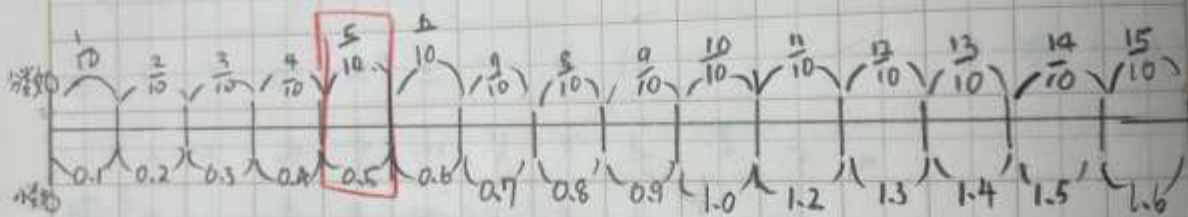 分数 1/10 2/10 3/10 4/10 5/10 6/10 7/10 8/10 9/10 10/10 11/10 12/10 13/10 14/10 15/10
小数 0.1 0.2 0.3 0.4 0.5 0.6 0.7 0.8 0.9 1.0 1.2 1.3 1.4 1.5 1.6